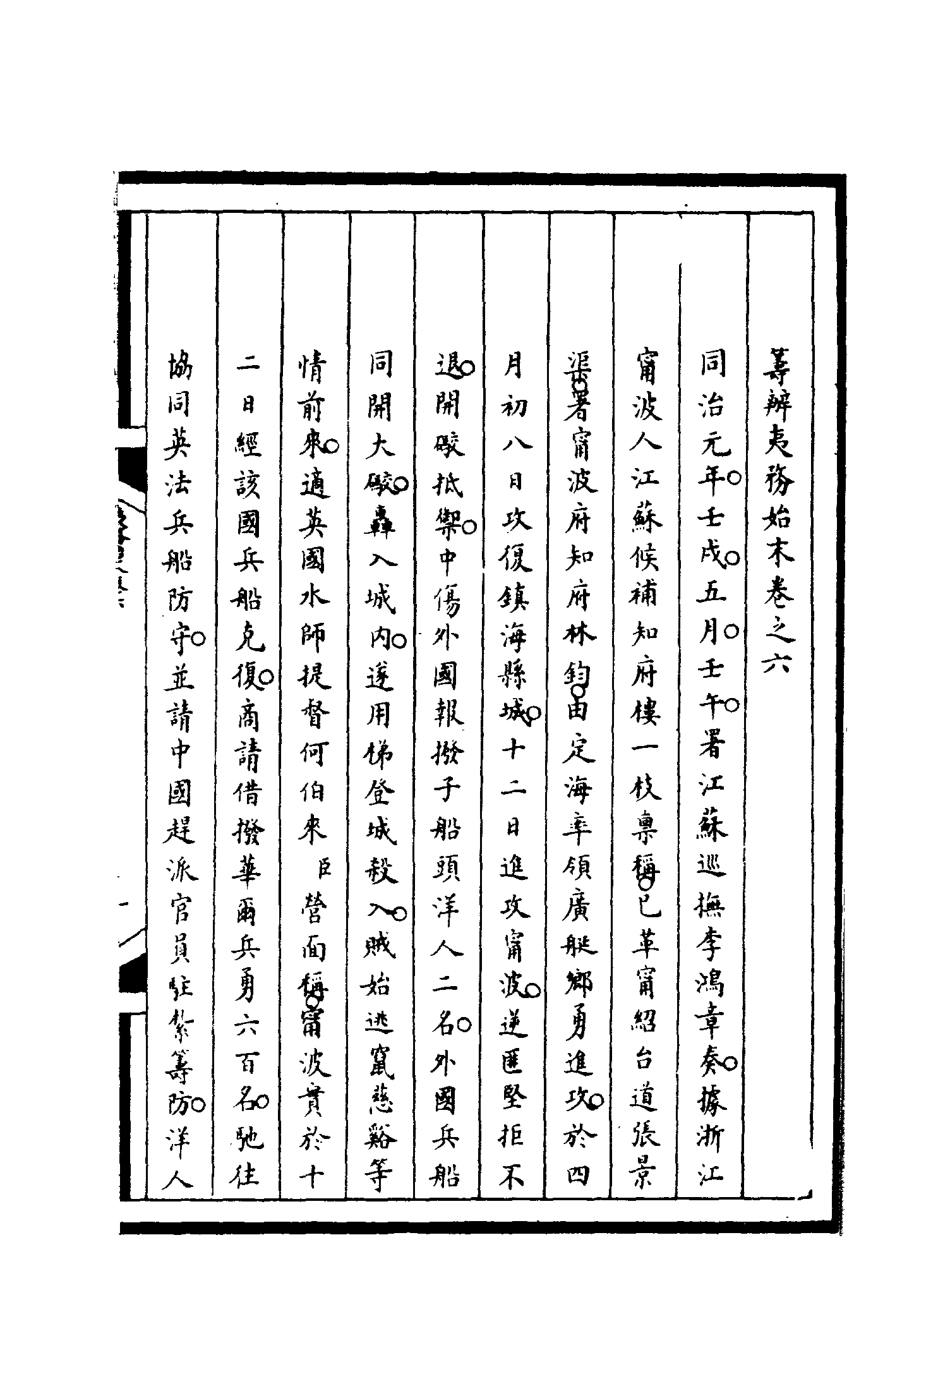 籌辦夷務始末卷之六
同治元年。壬戌。五月。壬午。署江蘇巡撫李鴻章奏。據浙江
甯波人江蘇候補知府樓一枝稟稱。已革甯紹台道張景
渠。署甯波府知府林鈞。由定海率領廣艇鄉勇進攻。於四
月初八日攻復鎮海縣城。十二日進攻甯波。逆匪堅拒不
退。開礮抵禦。中傷外國報撥子船頭洋人二名。外國兵船
同開大礮。轟入城內。遂用梯登城殺入。賊始逃竄慈谿等
情前來。適英國水師提督何伯來臣營面稱。甯波實於十
二日經該國兵船克復。商請借撥華爾兵勇六百名。馳往
協同英法兵船防守。並請中國趕派官員駐紮籌防。洋人